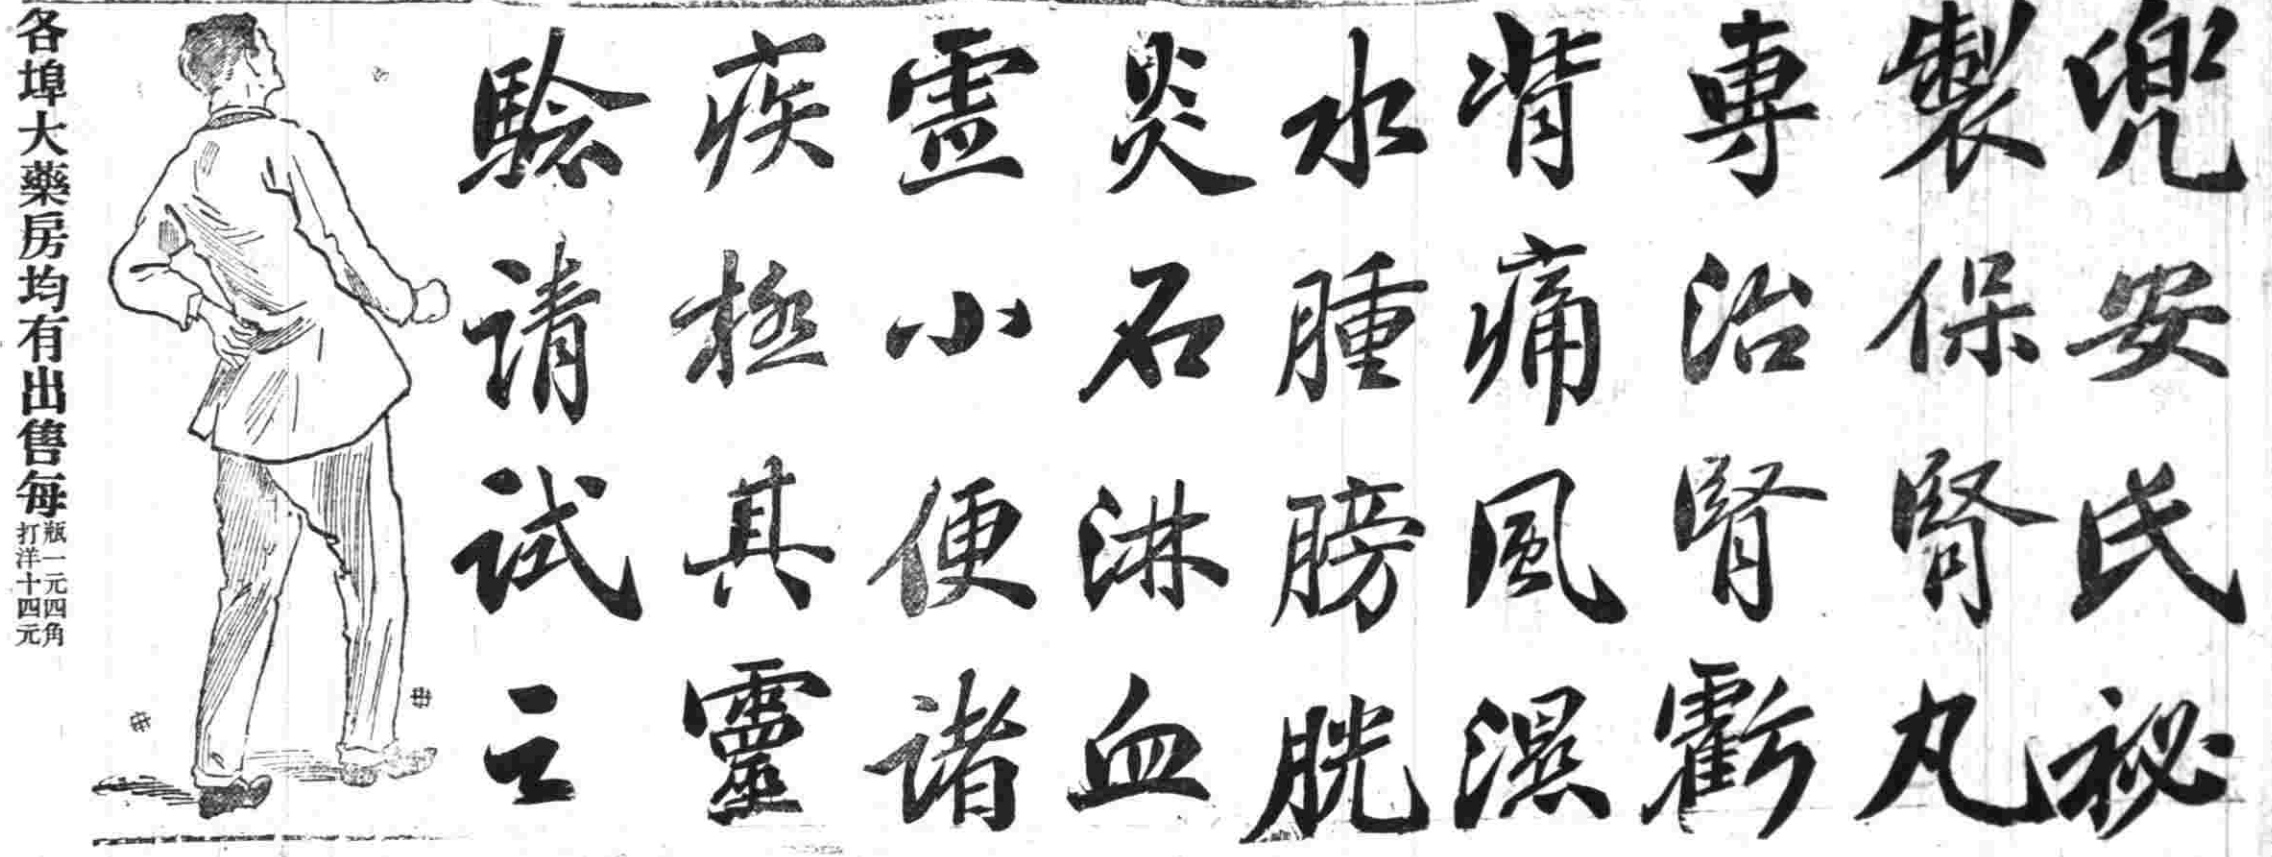 兜安氏祕
製保腎丸
專治腎虧
背痛風濕
水腫膀胱
炎石淋血
靈小便诸
疾極其靈
騐请试之
各埠大藥房均有出售每
瓶一元四角
打洋十四元